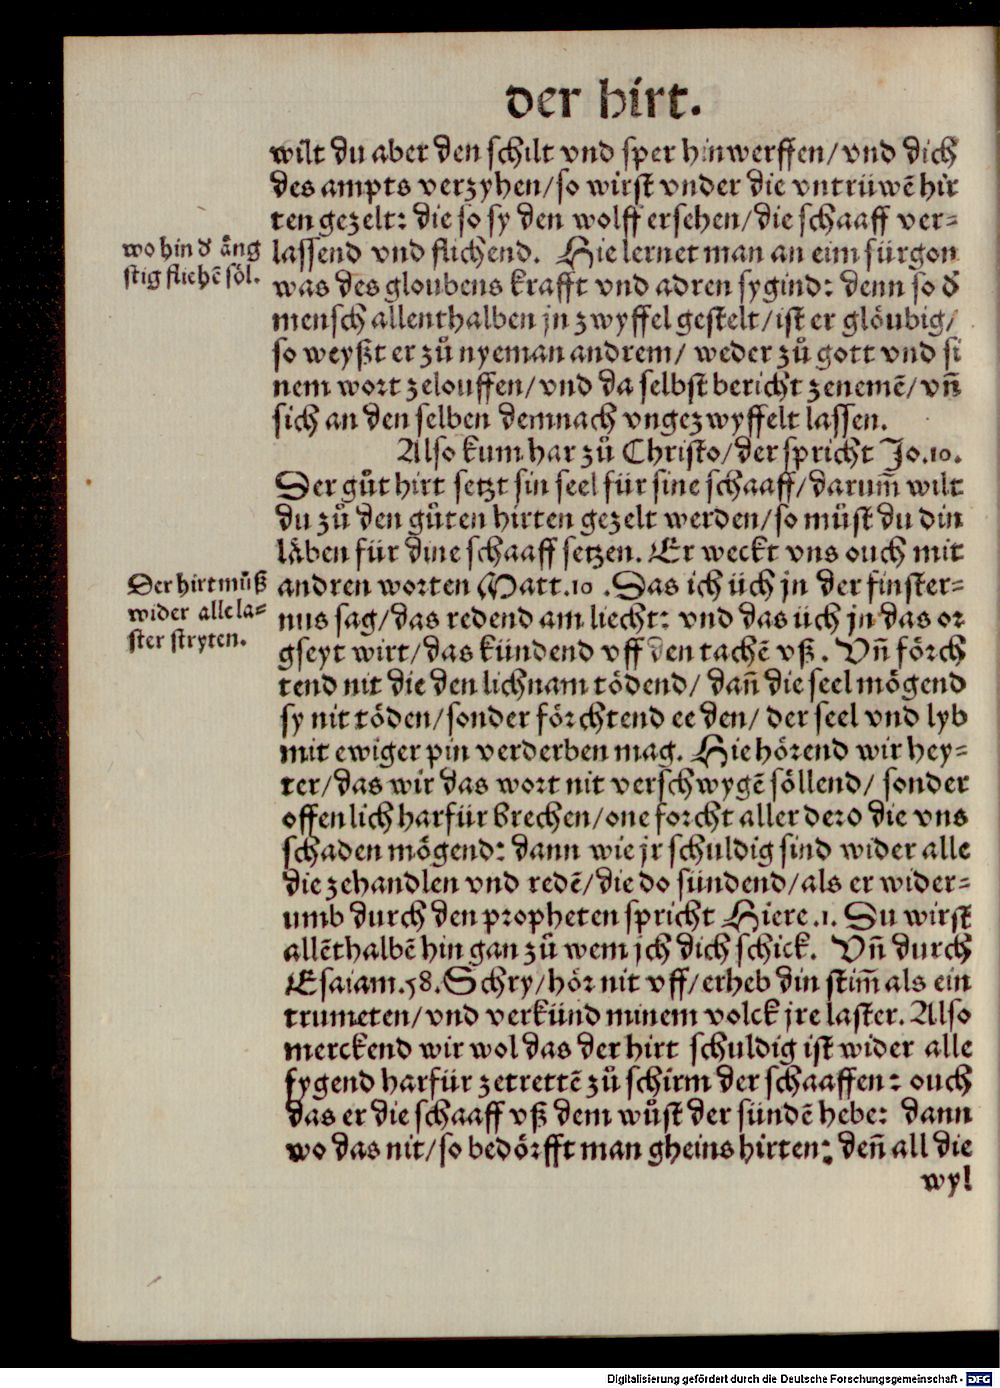 der hirt.
wilt du aber den schilt vnd sper hinwerffen/vnd dich
des ampts verzyhen/so wirst vnder die vntrüwē hir
ten gezelt: die so sy den wolff ersehen/die schaaff ver-
lassend vnd fliehend. Hie lernet man an eim fürgon
was des gloubens krafft vnd adren sygind: denn so d̕
mensch allenthalben jn zwyffel gestelt/ist er glöubig/
so weyßt er zů nyeman andrem/ weder zů gott vnd si
nem wort zelouffen/vnd da selbst bericht zenemē/vñ
sich an den selben demnach vngezwyffelt lassen.
wo hin d̕ äng
stig fliehē söl.
Also kum har zů Christo/der spricht Jo.10.
Der gůt hirt setzt sin seel für sine schaaff/darum̄ wilt
du zů den gůten hirten gezelt werden/so můst du din
läben für dine schaaff setzen. Er weckt vns ouch mit
andren worten Matt.10 .Das ich üch jn der finster-
nus sag/das redend am liecht: vnd das üch jn das or
gseyt wirt/das kündend vff den tachē vß. Vñ förch
tend nit die den lichnam tödend/ dañ die seel mögend
sy nit töden/sonder förchtend ee den/ der seel vnd lyb
mit ewiger pin verderben mag. Hie hörend wir hey-
ter/das wir das wort nit verschwygē söllend/ sonder
offenlich harfür brechen/one forcht aller dero die vns
schaden mögend: dann wie jr schuldig sind wider alle
die zehandlen vnd redē/die do sündend/als er wider-
umb durch den propheten spricht Hiere.1. Du wirst
allēthalbē hin gan zů wem jch dich schick. Vñ durch
Esaiam.58.Schry/hör nit vff/erheb din stim̄ als ein
trumeten/vnd verkünd minem volck jre laster. Also
merckend wir wol das der hirt schuldig ist wider alle
fygend harfür zetrettē zů schirm der schaaffen: ouch
das er die schaaff vß dem wůst der sündē hebe: dann
wo das nit/so bedörfft man gheins hirten: deñ all die
wyl
Der hirt můß
wider alle la-
ster stryten.
Digitalisierung gefördert durch die Deutsche Forschungsgemeinschaft - DFG